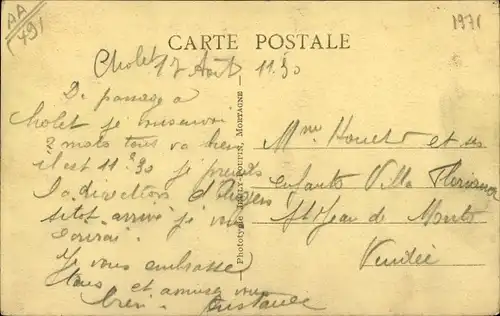 AA
491
1971
CARTE POSTALE
Cholet 17 Août 11.30
De passage a
Cholet je vous envoi
2 mots tout va bien
il est 11 h 30 je prends
la direction d'Angers
sitot arrivé je vous
ecrirai.
Je vous embrasse
Tous et amusez vous
bien
Phototypie POUPIN, MORTAGNE
Mme et ses
enfants Villa
St Jean de Monts
Vendée